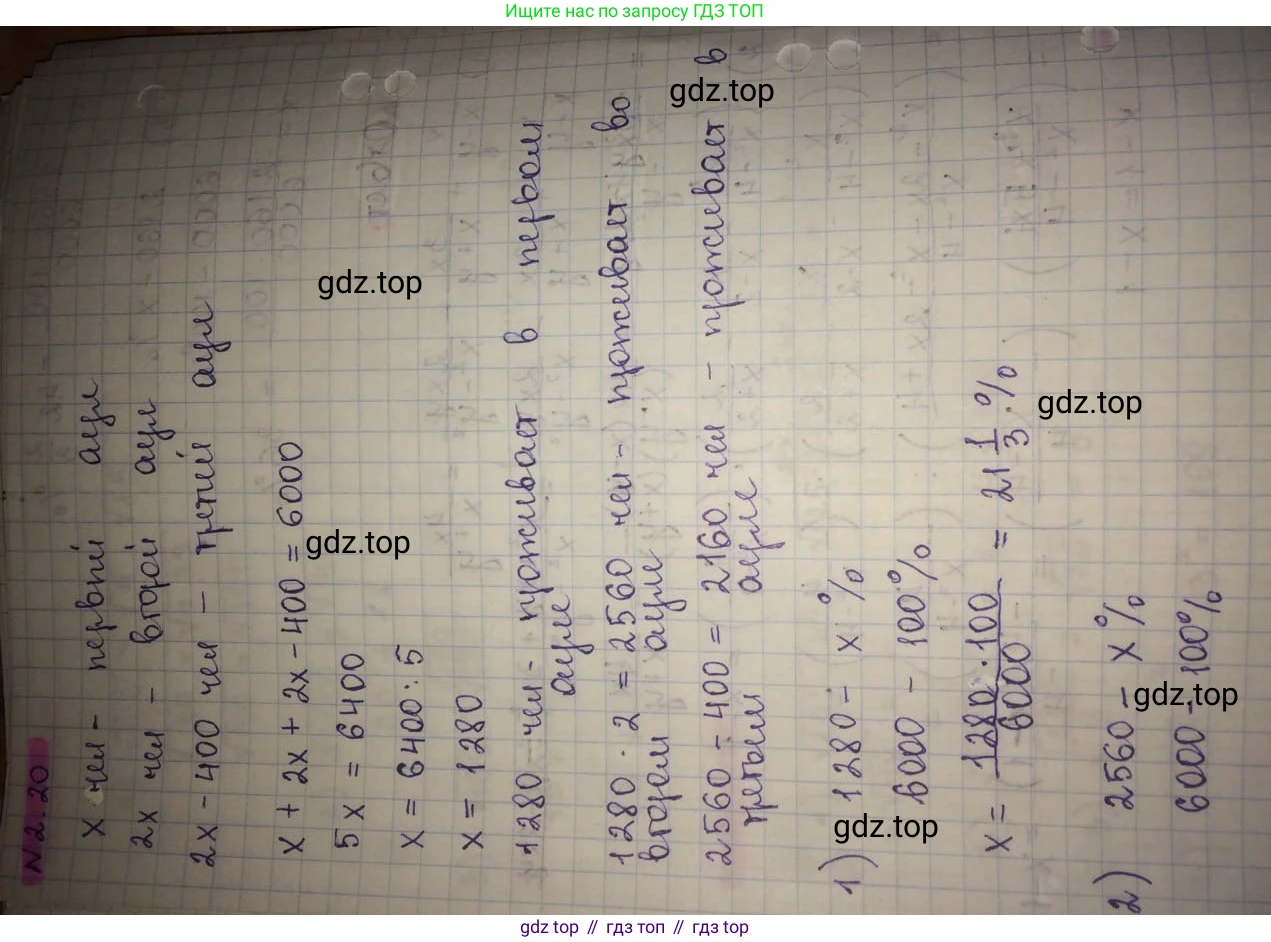 Ищите нас по запросу ГДЗ ТОП
N 2.20
x чел - первый аул
2x чел - второй аул
2x - 400 чел - третий аул
x + 2x + 2x - 400 = 6000
5x = 6400
x = 6400 : 5
x = 1280
1280 чел - проживает в первом
ауле
1280 · 2 = 2560 чел - проживает во
втором ауле
2560 - 400 = 2160 чел - проживает в
третьем ауле
1) 1280 - x %
6000 - 100 %
x = 1280 · 100 / 6000 = 21 1/3 %
2) 2560 - x %
6000 - 100%
gdz.top
gdz.top
gdz.top
gdz.top
gdz.top
gdz.top
gdz top // гдз топ // gdz top